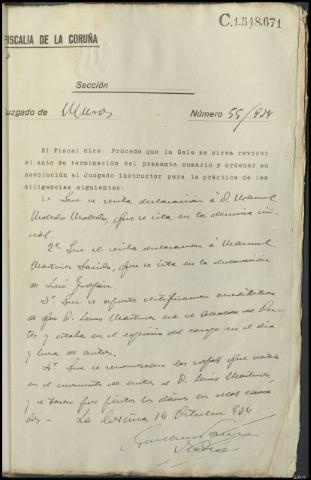 C.1.548.671
FISCALIA DE LA CORUÑA
Sección
Juzgado de Muros Número 55/934
El Fiscal dice: Procede que la Sala se sirva revocar
el auto de terminación del presente sumario y ordenar su
devolución al Juzgado instructor para la práctica de las
diligencias siguientes:
1º Que se reciba declaración a D. Manuel
que se cita en la denuncia ini-
cial.
2º Que se reciba declaración a Manuel
Martinez que se cita en la declaración
de Luis
3º Que se aporte certificación acreditativa
de que D. Luis Martinez era el Alcalde de
y estaba en el ejercicio del cargo en el día
y hora de autos.
4º Que se reconozcan las ropas que vestia
en el momento de autos el D. Luis Martinez,
y se tasen por peritos los daños en ellas causa-
dos - La Coruña 14 Octubre 934